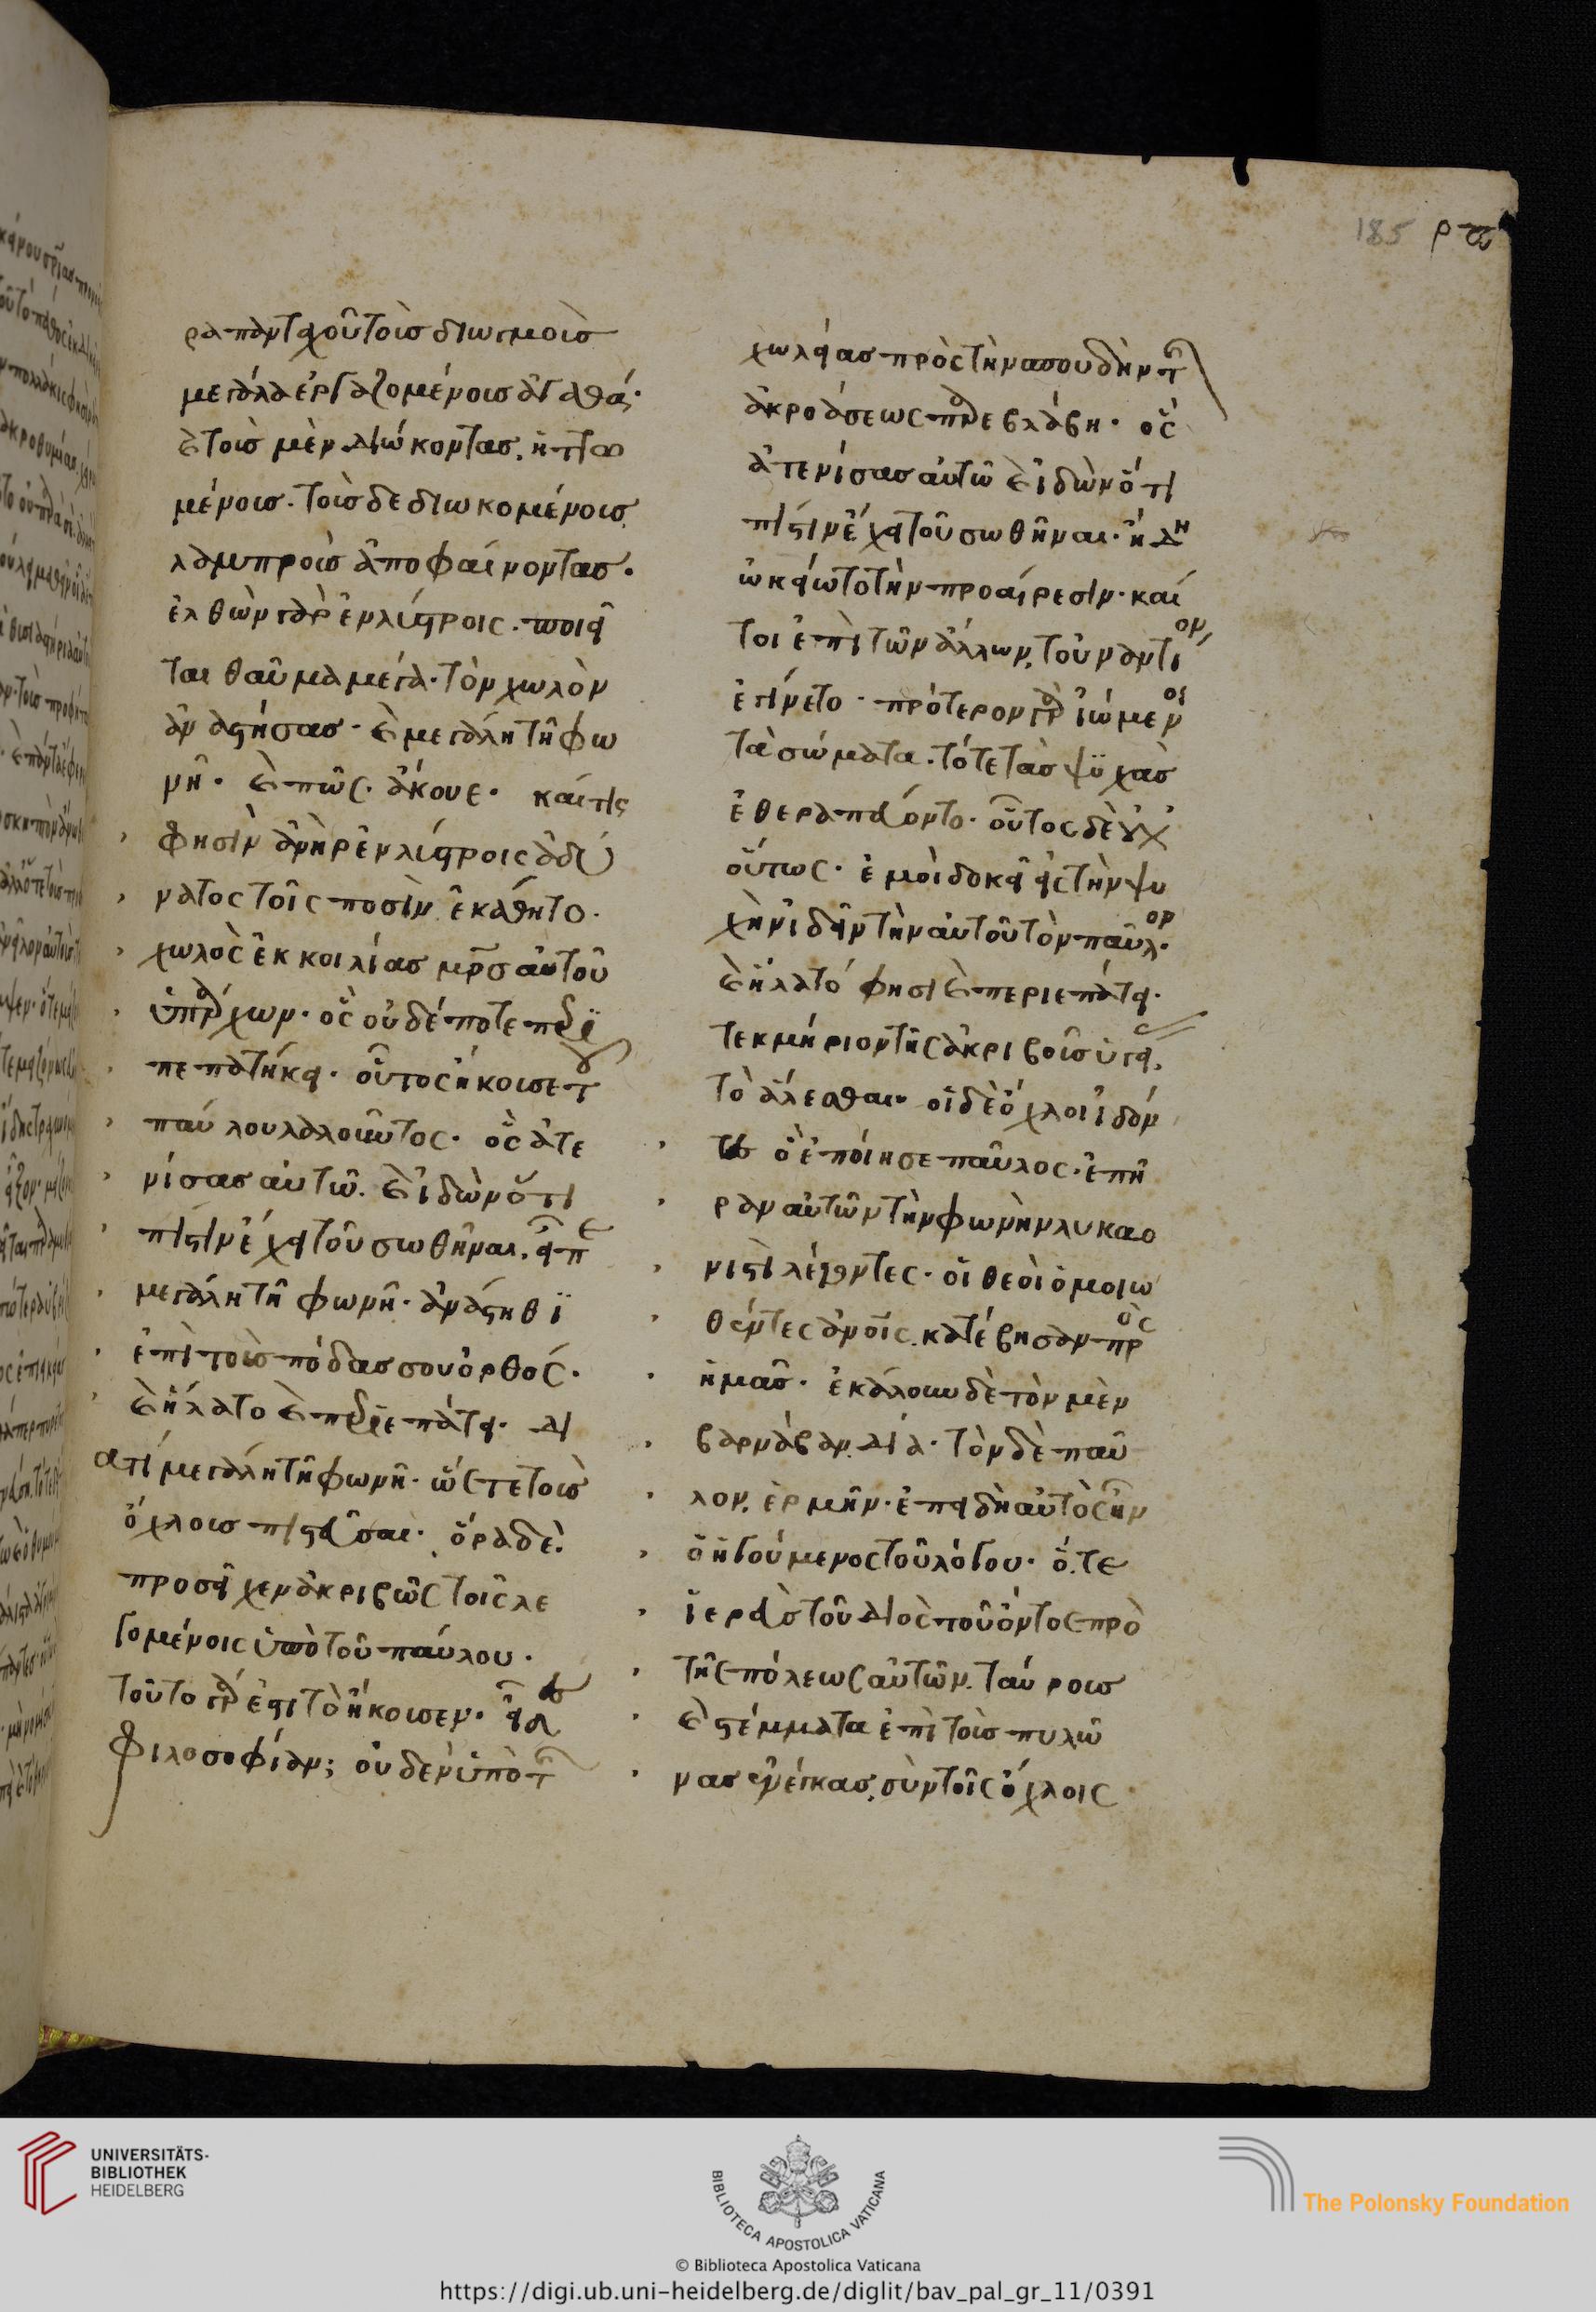 ρα πανταχοῦ τοὺς διωγμοὺς
μεγάλα ἐργαζομένους ἀγαθά·
καὶ τοὺς μὲν διώκοντας, ἡττω
μένους· τοὺς δὲ διωκομένους
λαμπροὺς ἀποφαίνοντας·
ἐλθὼν γὰρ ἐν λύστροις· ποιεῖ
ται θαῦμα μέγα· τὸν χωλὸν
ἀναστήσας· καὶ μεγάλη τῆ φω
νῆ· καὶ πῶς· ἄκουε· καί τις
φησὶν ἀνὴρ ἐν λύστροις ἀδύ
νατος τοῖς ποσὶν ἐκάθητο·
χωλὸς ἐκ κοιλίας μρς αὐτοῦ
ὑπάρχων· ὃς οὐδέποτε περι
πεπατήκει· οὗτος ἤκουσε τοῦ
παύλου λαλοῦντος· ὃς ἀτε
νίσας αὐτῶ· καὶ ἰδὼν ὅτι
πίστιν ἔχει τοῦ σωθῆναι, εἶπε
μεγάλη τῆ φωνῆ· ἀνάστηθϊ
ἐπὶ τοὺς πόδας σου ὀρθός·
καὶ ἥλατο καὶ περιεπάτει· δι
ατί μεγάλη τῆ φωνῆ· ὥστε τοὺς
ὄχλους πιστεῦσαι· ὅρα δέ·
προσεῖχεν ἀκριβῶς τοῖς λε
γομένοις ὑπὸ τοῦ παύλου·
τοῦτο γάρ ἐστι τὸ ἤκουσεν· εἶδες
φιλοσοφίαν; οὐδὲν ὑπὸ τῆς
185
χωλείας πρὸς τὴν σπουδὴν τῆς
ἀκροάσεως παρεβλάβη· ὃς
ἀτενίσας αὐτῶ καὶ ἰδὼν ὅτι
πίστιν ἔχει τοῦ σωθῆναι· ἤδη
ὠκείωτο τὴν προαίρεσιν· καί
τοι ἐπὶ τῶν ἄλλων, τοὐναντίον
ἐγίνετο· πρότερον γὰρ ἰώμενοι
τὰ σώματα· τότε τὰς ψϋχὰς
ἐθεραπεύοντο· οὗτος δὲ οὐχ
οὕτως· ἐμοὶ δοκεῖ εἰς τὴν ψυ
χὴν ἰδεῖν τὴν αὐτοῦ τὸν παῦλον·
καὶ ἥλατό φησι καὶ περιεπάτει·
τεκμήριον τῆς ἀκριβοῦς ὑγείας,
τὸ ἅλεσθαι· οἱ δὲ ὄχλοι ἰδόν
τες ὃ ἐποίησε παῦλος· ἐπῆ
ραν αὐτῶν τὴν φωνὴν λυκαο
νιστὶ λέγοντες· οἱ θεοὶ ὁμοιω
θέντες ἀνοις κατέβησαν πρὸς
ἡμᾶς· ἐκάλουν δὲ τὸν μὲν
βαρνάβαν, δία· τὸν δὲ παῦ
λον, ἑρμῆν· ἐπειδὴ αὐτὸς ἦν
ὁ ἡγούμενος τοῦ λόγου· ὅ, τε
ἱερεὺς τοῦ διὸς τοῦ ὄντος πρὸ
τῆς πόλεως αὐτῶν, ταύρους
καὶ στέμματα ἐπὶ τοὺς πυλῶ
νας ἐνέγκας, σὺν τοῖς ὄχλοις
UNIVERSITÄTS-
BIBLIOTHEK
HEIDELBERG
BIBLIOTECA APOSTOLICA VATICANA
© Biblioteca Apostolica Vaticana
The Polonsky Foundation
https://digi.ub.uni-heidelberg.de/diglit/bav_pal_gr_11/0391